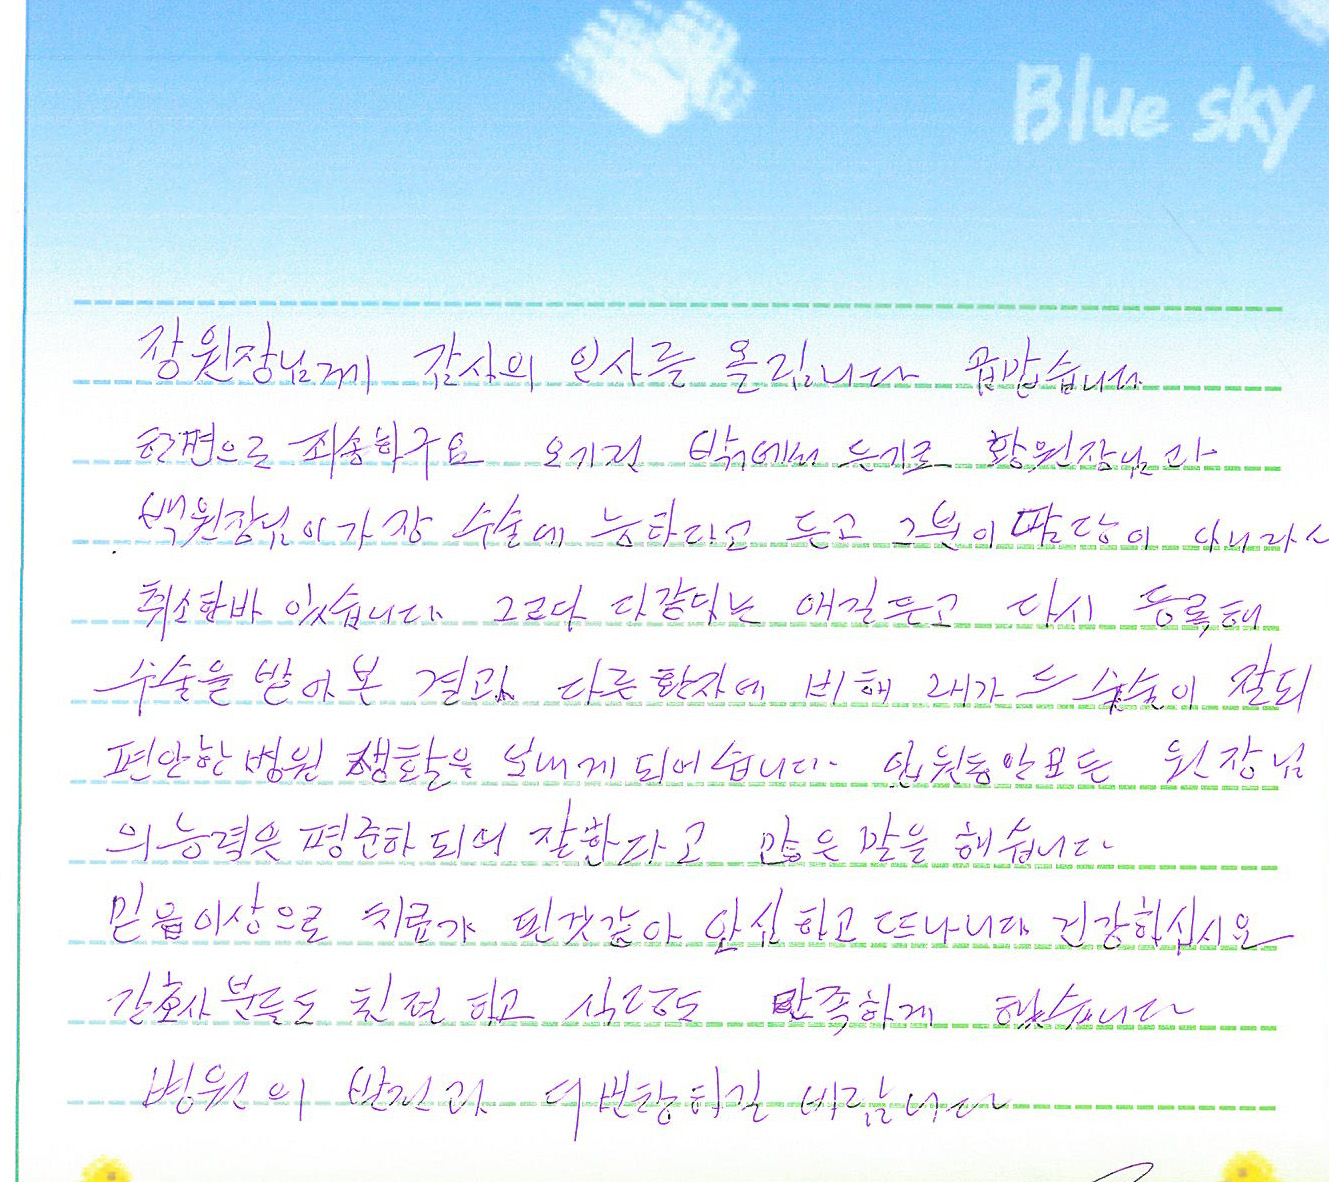 Blue sky
장원장님게 감사의 인사를 올립니다 곱맙습니다
한편으로 죄송하구요 오기전 밖에서 듣기로 황원장님과
백원장님이 가장 수술에 능하다고 듣고 그분이 담당이 아니라
취소한바 있습니다 그러다 다같다는 얘길듣고 다시 등록해
수술을 받아 본 결과 다른환자에 비해 내가 수술이 잘되
편안한 병원 생활을 보내게 되어습니다 입원동안 모든 원장님
의 능력은 평준하 되의 잘한다고 많은 말을 해습니다
믿음이상으로 치료가 된것같아 안심하고 떠나니다 건강하십시요
간호사분들도 친절하고 식당도 만족하게 했습니다
병원의 반전과 더번창하길 바랍니다